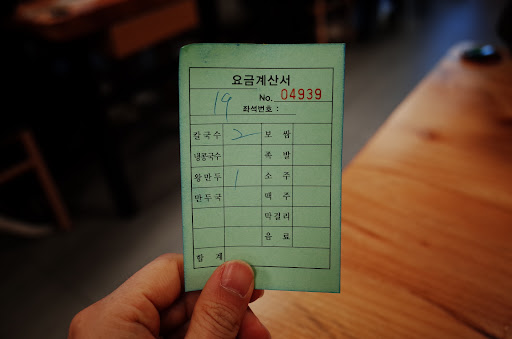 요금계산서
19 No. 04939
좌석번호 :
칼국수 2 보쌈
냉콩국수 족발
왕만두 1 소주
만두국 맥주
막걸리
음료
합계